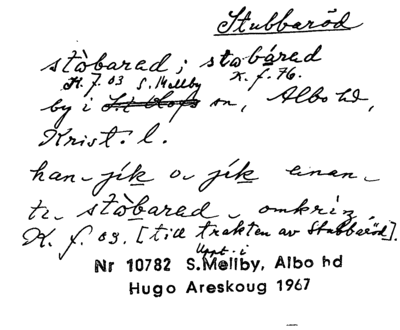 Stubbaröd
stòbarad; stobárad
K. f. 03 S. Mellby K. f. 76.
by i S:t Olofs sn, Albo hd,
Krist. l.
han jík o jík enan-
te stòbarad omkriŋ.
K. f. 03. [till trakten av Stubbaröd].
Uppt. i
Nr 10782 S.Mellby, Albo hd
Hugo Areskoug 1967